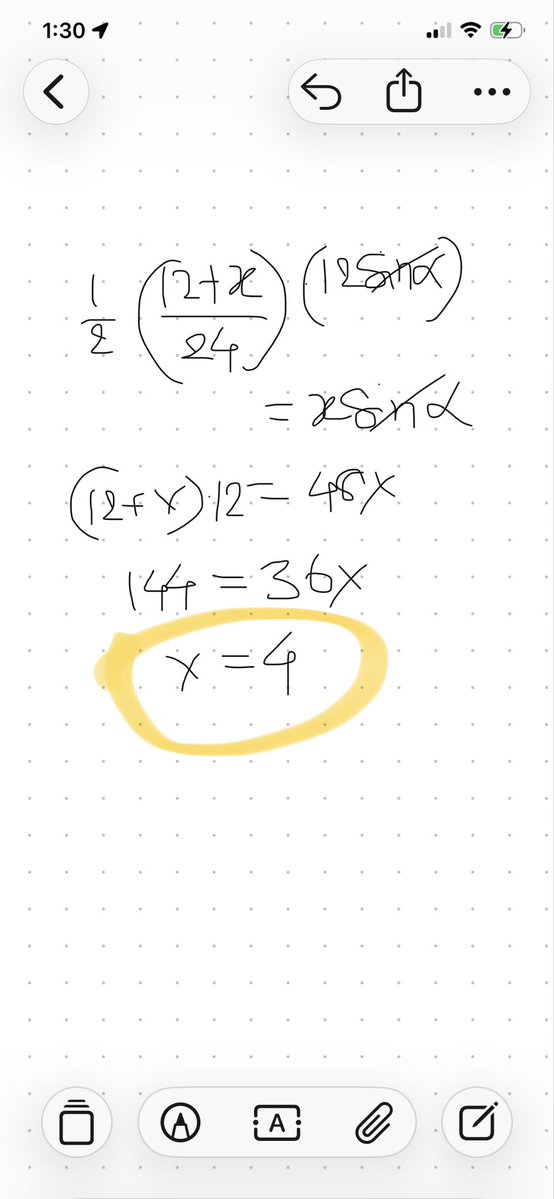 1:30
1/2 ((12+x)/24) (12sinα)
= xsinα
(12+x)12 = 48x
144 = 36x
x = 4
A